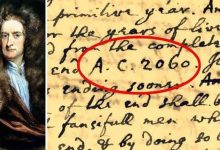 primitive year. And
the years of live
from the comple
end A.C. 2060
ending sooner.
of the end shall
fancifull men wh
end, & by doing so